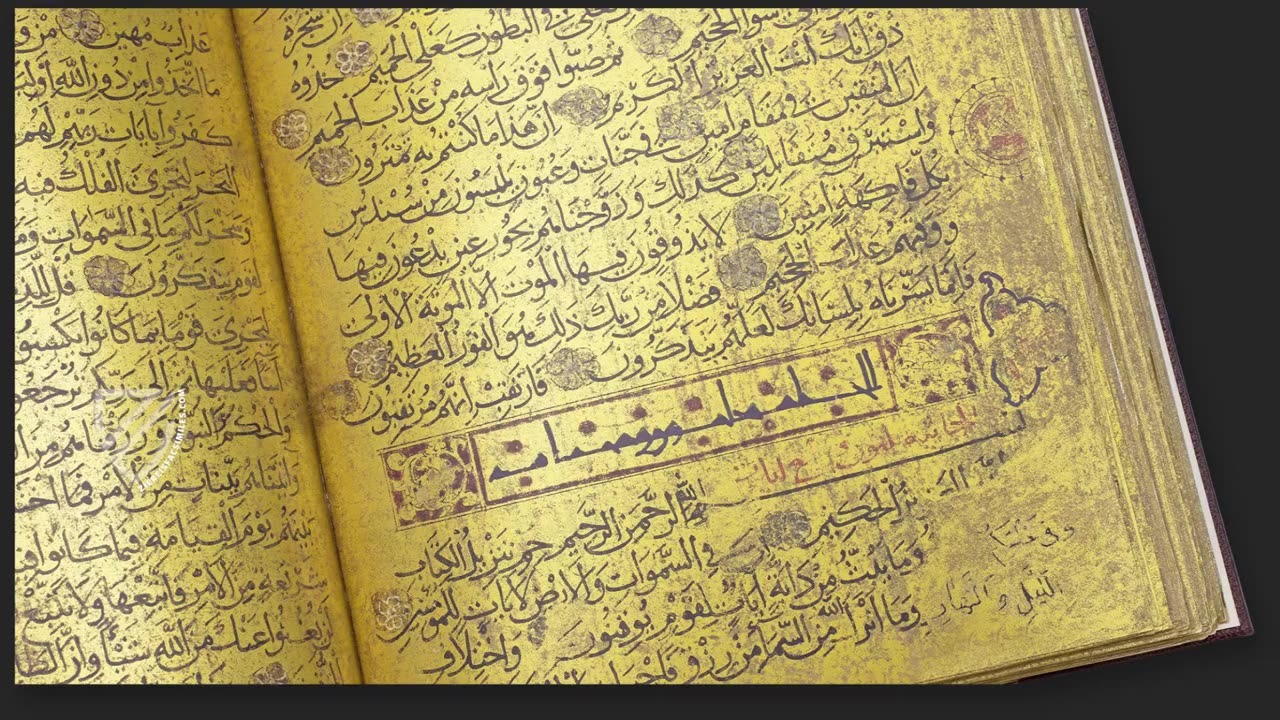 يغلي في البطون كغلي الحميم خذوه
سواء الجحيم ثم صبوا فوق راسه من عذاب الحميم
ذق انك انت العزيز الكريم ان هذا ما كنتم به تمترون
ان المتقين في مقام امين في جنات وعيون يلبسون من سندس
واستبرق متقابلين كذلك وزوجناهم بحور عين يدعون فيها
بكل فاكهة امنين لا يذوقون فيها الموت الا الموتة الاولى
ووقيهم عذاب الجحيم فضلا من ربك ذلك هو الفوز العظيم
فانما يسرناه بلسانك لعلهم يتذكرون فارتقب انهم مرتقبون
بسم الله الرحمن الرحيم حم تنزيل الكتاب
من الله العزيز الحكيم ان في السموات والارض لايات للمؤمنين
وفي خلقكم وما يبث من دابة ايات لقوم يوقنون واختلاف
الليل والنهار وما انزل الله من السماء من رزق فاحيا
عذاب مهين من
ما اتخذوا من دون الله اوليا
كفروا بايات ربهم لهم
البحر لتجري الفلك فيه
وسخر لكم ما في السموات وما
لقوم يتفكرون قل للذين
ليجزي قوما بما كانوا يكسبون
اسا فعليها ثم الى ربكم ترجعون
والحكم والنبوة ورزقناهم من
واتيناهم بينات من الامر فما اختلفوا
بينهم يوم القيامة فيما كانوا فيه
شريعة من الامر فاتبعها ولا تتبع
لن يغنوا عنك من الله شيئا وان الظالمين